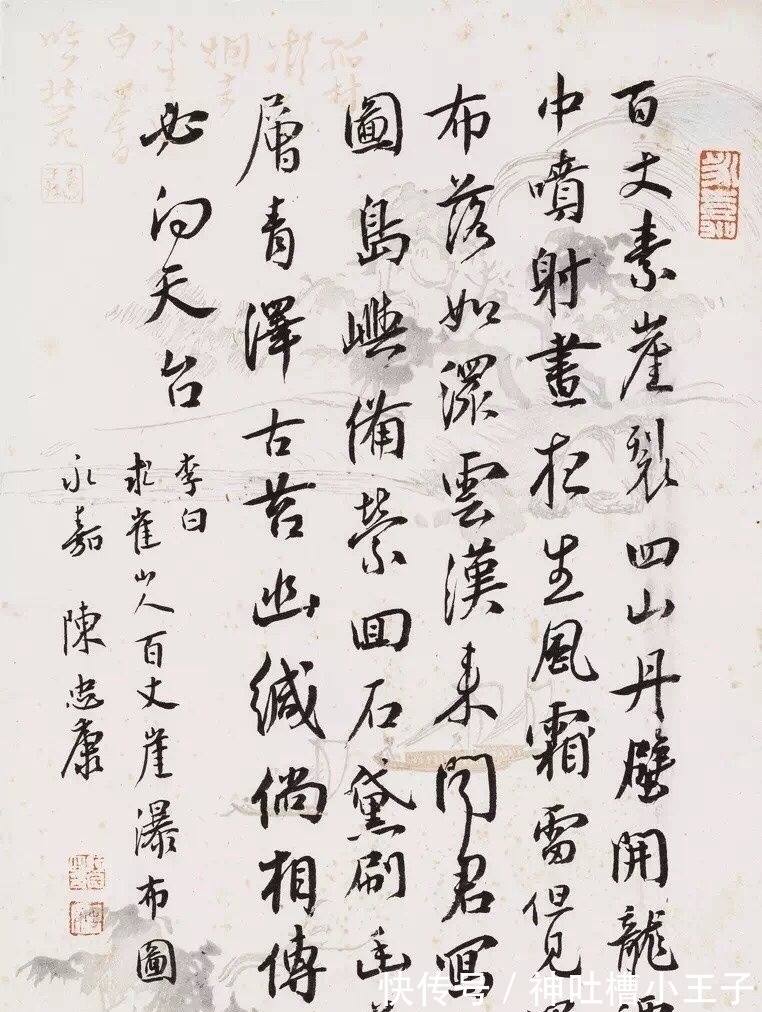 百丈素崖裂四山丹壁開龍
中噴射晝夜生風霜雷但見
布落如潀雲漢来聞君寫
圖島嶼備縈囬石黛刷幽
層青澤古苔幽緘倘相傳
必向天台
李白
求崔山人百丈崖瀑布圖
永嘉 陳忠康
快传号 / 神吐槽小王子